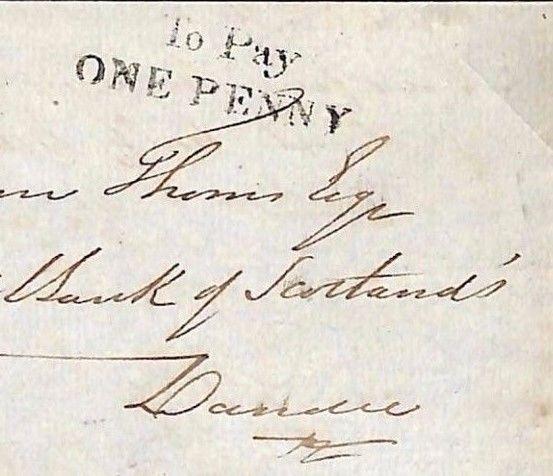 To Pay
ONE PENNY
Thoms Esqr
Bank of Scotland's
Dundee